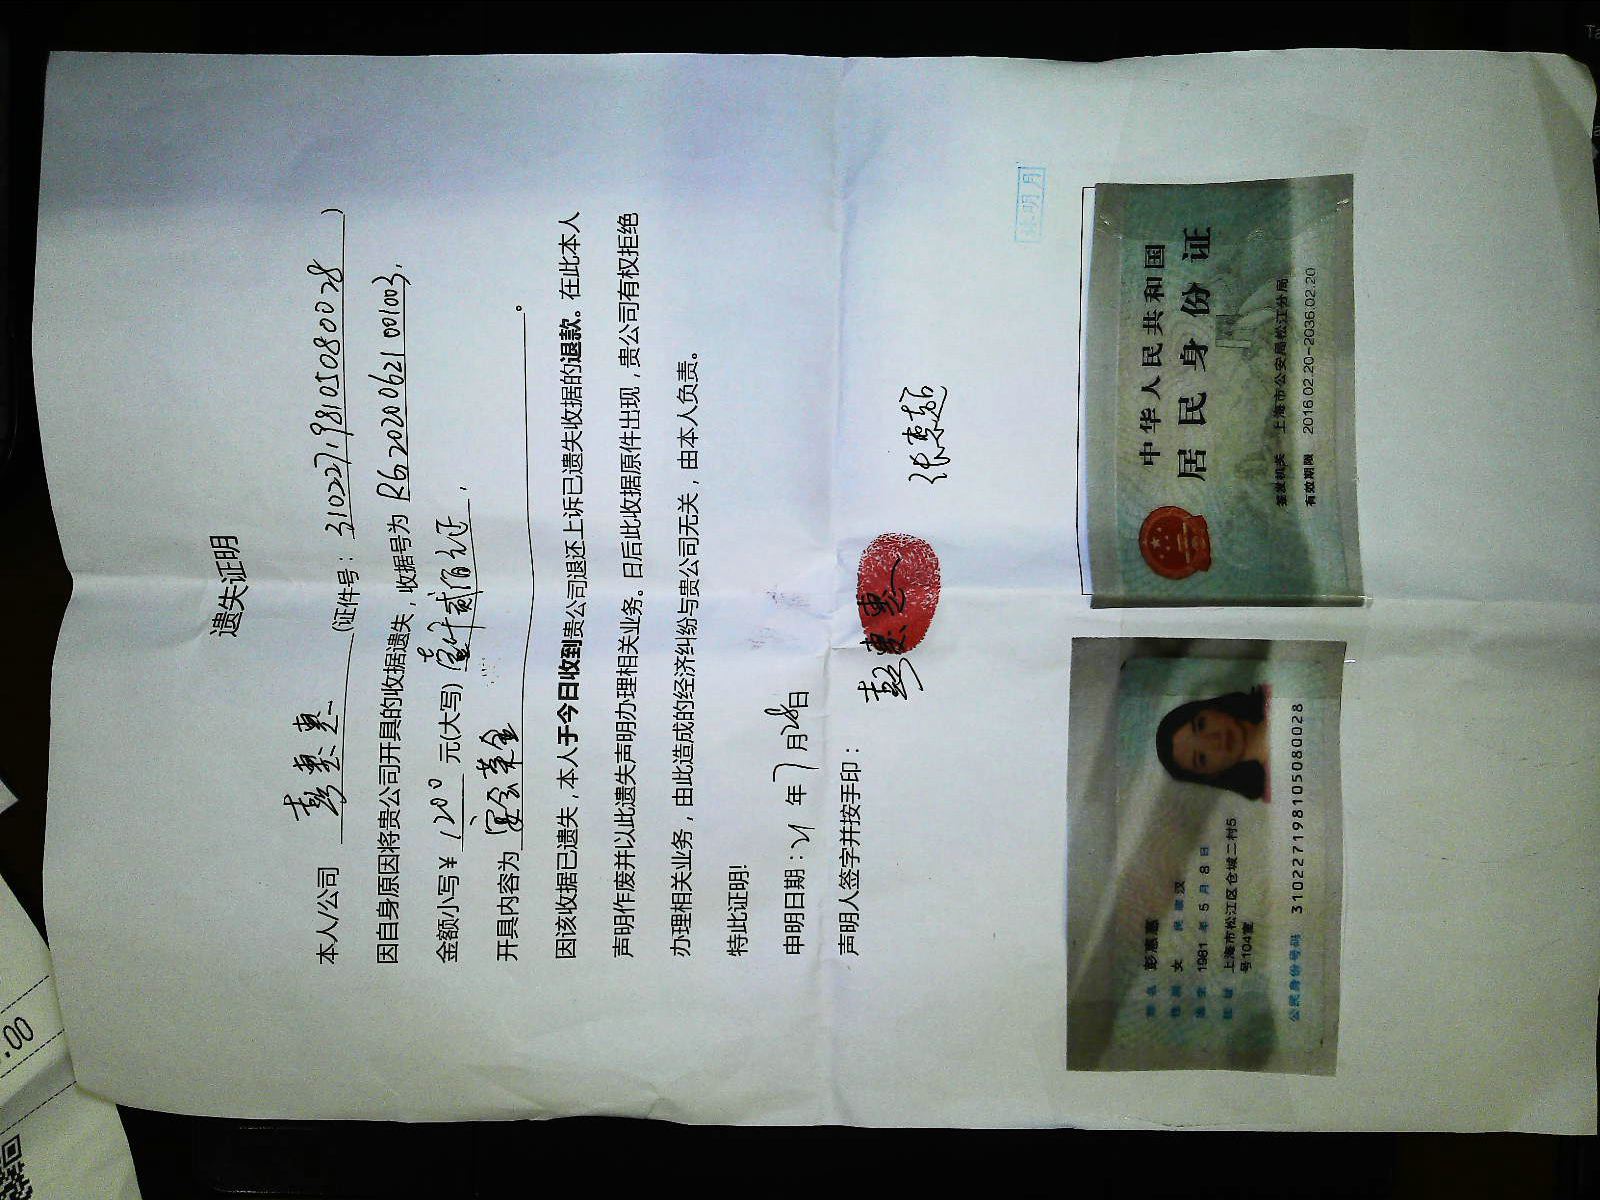 遗失证明
本人/公司 彭惠惠 (证件号：310227198105080028)
因自身原因将贵公司开具的收据遗失，收据号为 RG20200621001003，
金额小写￥1200 元(大写)壹仟贰佰元正，
开具内容为 宴会菜金。
因该收据已遗失，本人于今日收到贵公司退还上诉已遗失收据的退款。在此本人
声明作废并以此遗失声明办理相关业务。日后此收据原件出现，贵公司有权拒绝
办理相关业务，由此造成的经济纠纷与贵公司无关，由本人负责。
特此证明!
申明日期：21 年 7 月 28 日
声明人签字并按手印： 彭惠惠
明月
姓名 彭惠惠
性别 女 民族 汉
出生 1981 年 5 月 8 日
住址 上海市松江区仓城二村5
号104室
公民身份号码 310227198105080028
中华人民共和国
居民身份证
签发机关 上海市公安局松江分局
有效期限 2016.02.20-2036.02.20
.00